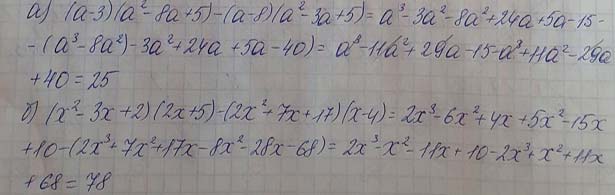 а) (a-3)(a²-8a+5)-(a-8)(a²-3a+5)=a³-3a²-8a²+24a+5a-15-
-(a³-8a²)-3a²+24a+5a-40)=a³-11a²+29a-15-a³+11a²-29a
+40=25
б) (x²-3x+2)(2x+5)-(2x²+7x+17)(x-4)=2x³-6x²+4x+5x²-15x
+10-(2x³+7x²+17x-8x²-28x-68)=2x³-x²-11x+10-2x³+x²+11x
+68=78